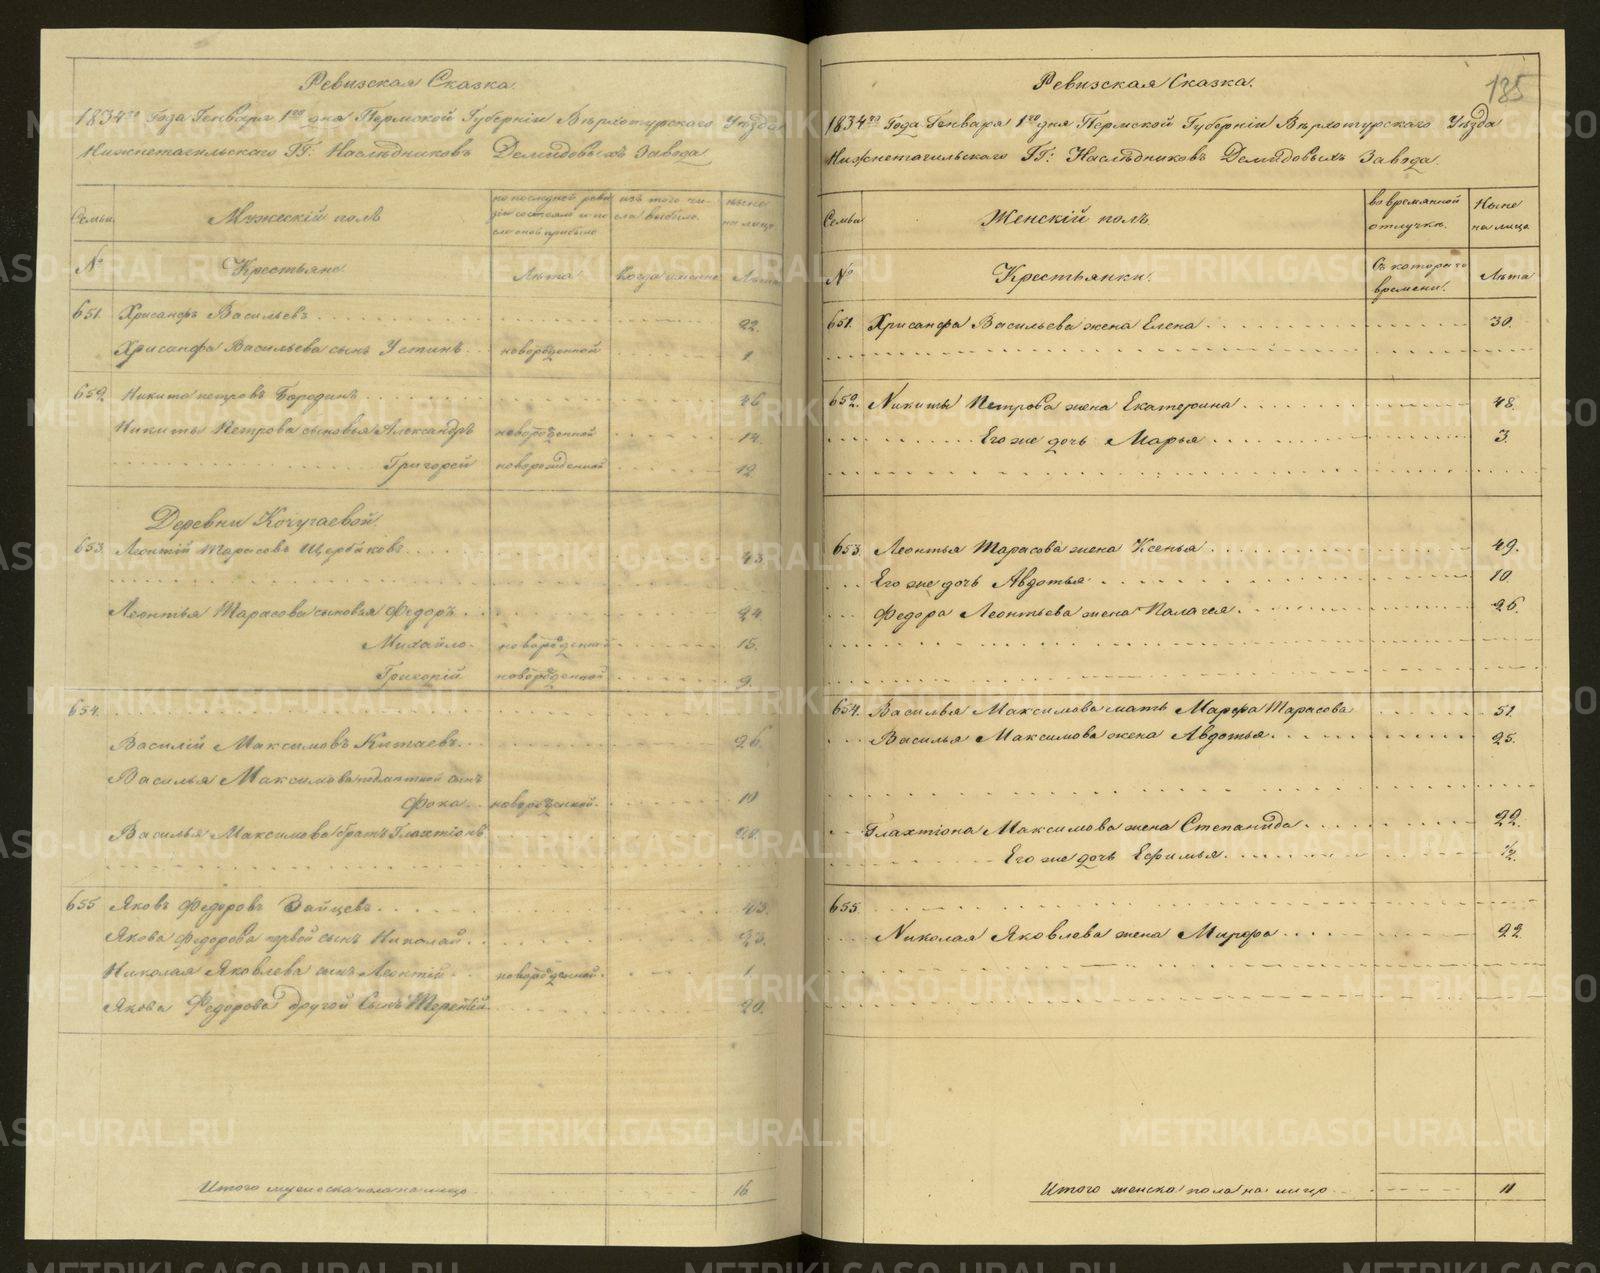 Ревизская Сказка.
1834го Года Генваря 1го дня Пермской Губернiи Верхотурскаго Уезда
Нижнетагильскаго ГГ: Наследниковъ Демидовыхъ Завода.
Семьи
Мужескiй полъ
по последней реви
зiи состояло и по
сле оной прибыло
изъ того чи-
сла выбыло.
ныне
на лицо
№
Крестьяне.
Лета.
Когда имянно
Лета
651. Хрисанфъ Васильевъ 22.
Хрисанфа Васильева сынъ Устинъ новорожденной 1
652. Никита петровъ Бородинъ 46
Никиты Петрова сыновья Александръ новорожденной 14.
Григорей новорожденной 12.
Деревни Кочугаевой.
653. Леонтiй Тарасовъ Щербаковъ 43
Леонтья Тарасова сыновья Федоръ 24.
Михайло новорожденной 15.
новорожденной 9.
654.
Василiй Максимовъ Китаевъ 26.
Василья Максимова сынъ
Фока новорожденной 10
Василья Максимова братъ Галахтiонъ
655 Яковъ Федоровъ Зайцевъ 43.
Якова Федорова первой сынъ Николай 23.
Николая Яковлева сынъ Леонтiй новорожденной. 1.
Якова Федорова другой Сынъ Терентiй 20.
Итого мужеска пола на лицо 16
185
Ревизская Сказка.
1834го Года Генваря 1го дня Пермской Губернiи Верхотурскаго Уезда
Нижнетагильскаго ГГ: Наследниковъ Демидовыхъ Завода.
Семьи
Женскiй полъ.
во времянной
отлучке.
Ныне
на лицо
№
Крестьянки.
Съ котораго
времени.
Лета
651. Хрисанфа Васильева жена Елена 30.
652. Никиты Петрова жена Екатерина 48.
Его же дочь Марья 3.
653. Леонтья Тарасова жена Ксенья 49.
Его же дочь Авдотья 10.
Федора Леонтьева жена Палагея 26.
654. Василья Максимова мать Марфа Тарасова 51.
Василья Максимова жена Авдотья 25.
Галахтiона Максимова жена Степанида 22.
Его же дочь Ефимья 1/2
655.
Николая Яковлева жена Марфа 22
Итого женска пола на лицо 11
METRIKI.GASO-URAL.RU